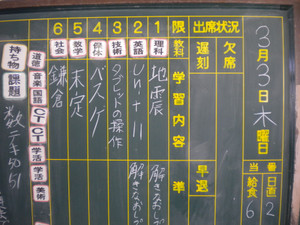 3月3日木曜日
当番
日直 2
給食 6
出席状況
欠席
遅刻
早退
限 教科 学習内容 準
1 理科 地震 解きなおし
2 英語 Unit 11 解きなおし
3 技術 タブレットの操作
4 保体 バスケ
5 数学 未定
6 社会 鎌倉
持ち物 課題
道徳 音楽 国語 CT CT 学活 学活 美術